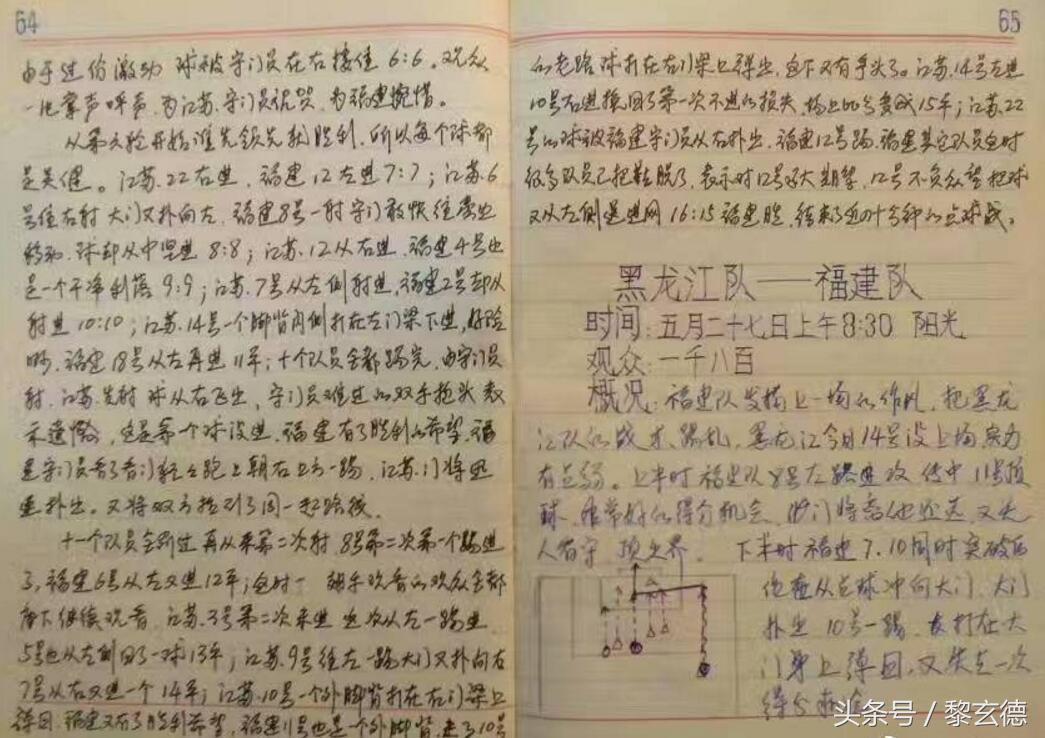 64
由于过份激动 球被守门员在右接住6:6。观众
一片掌声呼声,为江苏守门员祝贺,为福建惋惜。
从第六轮开始谁先领先就胜利,所以每个球都
是关健。江苏.22右进,福建12左进7:7;江苏.6
号往右射 大门又扑向左,福建8号一射守门敢快往
移动,球却从中坚进 8:8;江苏.12从右进,福建4号也
是一个干净利落9:9;江苏.7号从左侧射进,福建2号却从
射进10:10;江苏.14号一个脚背内侧打在左门梁下进,好险
啊,福建18号从左再进11平;十个队员全都踢完,由守门员
射,江苏先射 球从右飞出,守门员难过的双手抱头表
示遗憾,这是第一个球没进,福建有了胜利的希望,福
建守门员看了看门 跑上朝右上方一踢,江苏门将迅
速扑出。又将双方拉到了同一起路线。
十一个队员全踢过再从来第二次射,8号第二次第一个踢进
了,福建6号从左又进12平;这时一 观看的观众全都
座下继续观看,江苏.3号第二次来进 这次从左一踢进,
5号也从左侧回了一球13平;江苏.9号往左一踢大门又扑向右
7号从右又进一个14平;江苏.10号一个外脚背打在右门梁上
弹回,福建又有了胜利希望,福建11号也是一个外脚背,走了10号
65
的老路 球打在右门梁上弹出,这下又有手头了。江苏.14号左进
10号右进挽回了第一次不进的损失,场上比分变成15平;江苏.22
号的球被福建守门员从右扑出,福建12号踢,福建其它队员这时
很多队员已把鞋脱了,表示对12号的大期望,12号不负众望把球
又从左侧送进网16:15福建胜,结束了近四十分钟的点球战。
黑龙江队——福建队
时间:五月二十七日上午8:30 阳光
观众:一千八百
概况:福建队发扬上一场的作风,把黑龙
江队的战术踢乱,黑龙江今日14号没上场,实力
有点弱。上半时福建队8号左路进攻 传中 11号顶
球,非常好的得分机会,
人看守 顶出界。 下半时福建7.10同时突破后
从点球冲向大门,大门
扑出 10号一踢,
门 上弹回,又失去一次
得分
头条号/黎玄德